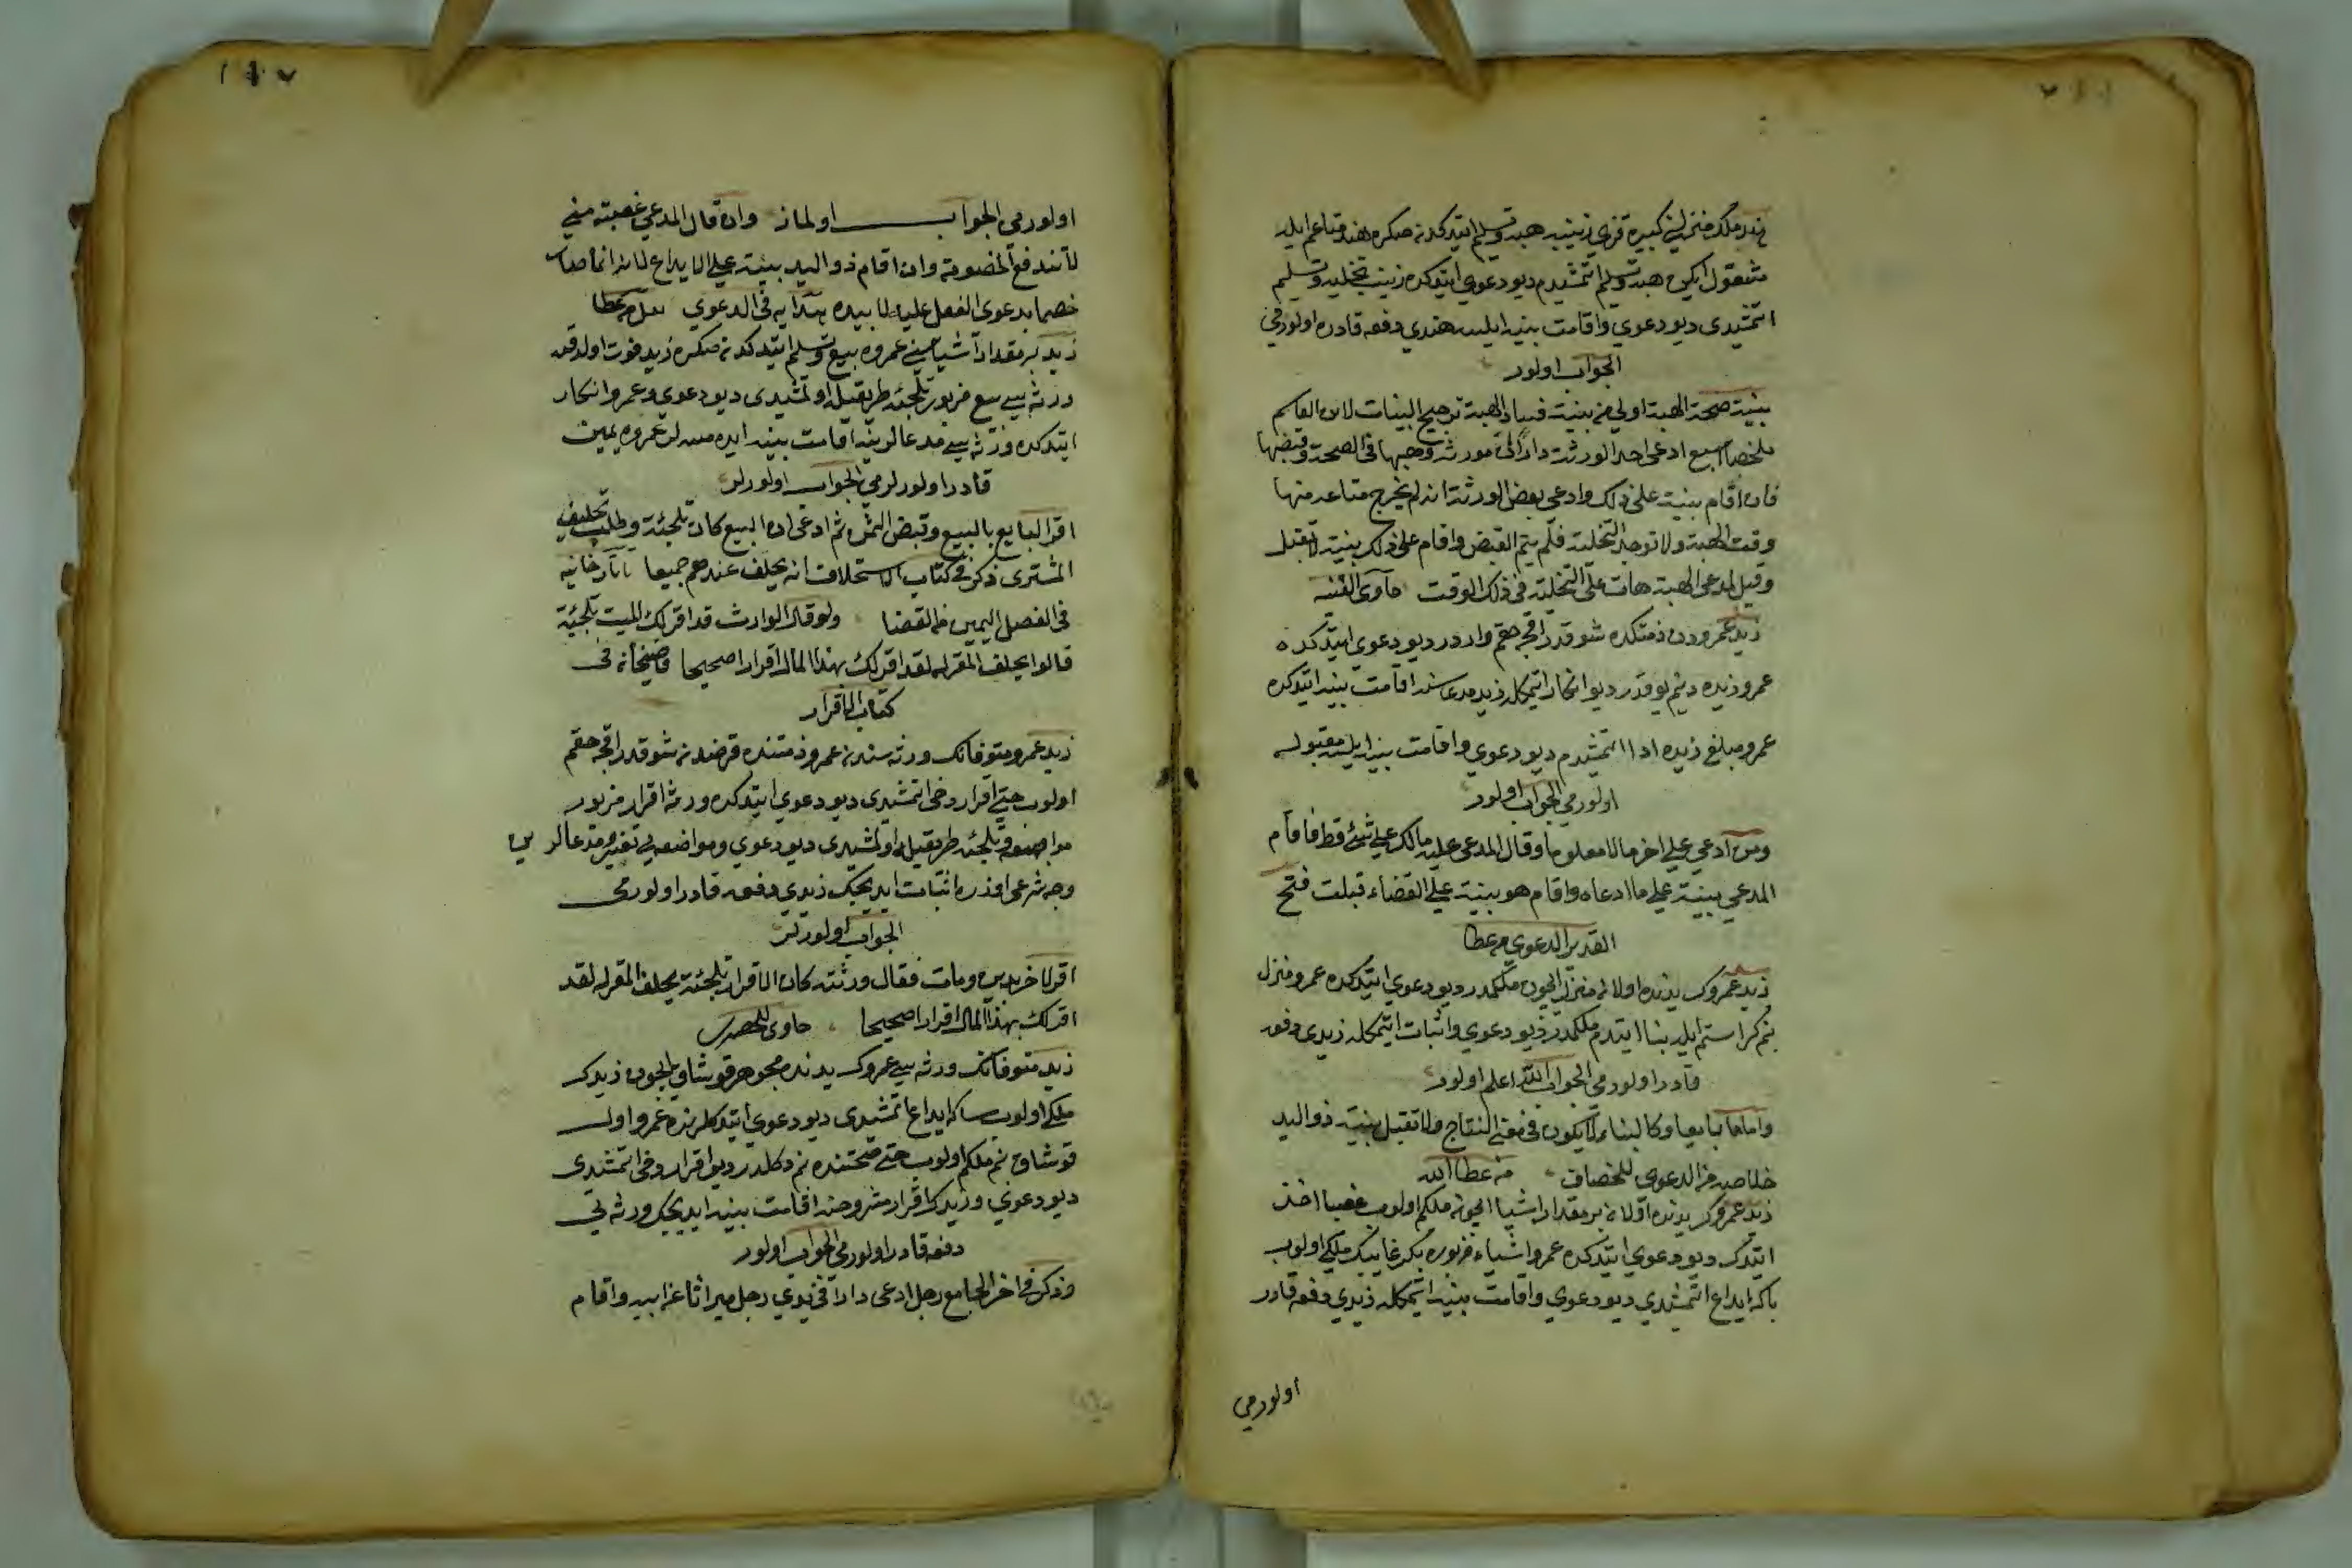 هند ملك منزلني كبيره قزي زينبه هبه وتسليم ايتدكدنصكره هند متاعم ايله
مشغول ايكن هبه وتسليم اتمشيدم ديو دعوي ايتدكده زينب تخليه وتسليم
اتمشيدى ديو دعوي واقامت بينه ايلسه هندي دفعه قادره اولورمي
الجواب اولور
بينة صحة الهبة اولي من بينة فساد الهبة ترجيح البينات لابن الغانم
ملخصا ادعى احد الورثة دارا ان مورثه وهبها في الصحة وقبضها
فان اقام بينة على ذلك وادعى بعض الورثة انه لم يخرج متاعه منها
وقت الهبة ولا توجد التخلية فلم يتم القبض واقام على ذلك بينة لا تقبل
وقيل لمدعى الهبة هات على التخلية في ذلك الوقت حاوى القنيه
زيد عمرودن ذمتكده شو قدر اقچه حقم واردر ديو دعوي ايتدكده
عمرو زيده دينم يوقدر ديو انكار اتمكله زيد مدعاسنه اقامت بينه ايتدكده
عمرو مبلغ زيده ادا اتمشيدم ديو دعوي واقامت بينه ايلسه مقبوله
اولورمي الجواب اولور
ومن ادعي علي اخر مالا معلوما وقال المدعى عليه مالك علي شئ قط فاقام
المدعي بينة علي ما ادعاه واقام هو بينة علي القضاء قبلت فتح
القدير الدعوي من عطا
زيد عمروك يدنده اولان منزل ايچون ملكمدر ديو دعوي ايتدكده عمرو منزل
بنم كراستم ايله بنا ايتدم ملكمدر ديو دعوي واثبات اتمكله زيدى دفعه
قادر اولورمي الجواب الله اعلم اولور
واما ما يبايع او كالبناء لا يكون في معني النتاج ولا تقبل بينة ذو اليد
خلاصه من الدعوى للخصاف من عطا الله
زيد عمروك يدنده اولان بر مقدار اشيا ايچون ملكم اولوب غصبا اخذ
ايتدك ديو دعوي ايتدكده عمرو اشياء مزبوره بكر غايبك ملكي اولوب
باكه ايداع اتمشيدي ديو دعوي واقامت بينه اتمكله زيدي دفعه قادر
اولورمي
١٨٧
اولورمى الجواب اولماز وان قال المدعي غصبته مني
لا تندفع الخصومة وان اقام ذو اليد بينة علي الايداع لانه انما صار
خصما بدعوى الفعل عليه لا بيده هدايه في الدعوي من عطا
زيد بر مقدار اشياسني عمروه بيع وتسليم ايتدكدنصكره زيد فوت اولدقده
ورثه سي بيع مزبور تلجئه طريقيله اولمشيدى ديو دعوي وعمرو انكار
ايتدكده ورثه سي مدعالرينه اقامت بينه ايده مسه لر عمروه يمين
قادر اولورلرمي الجواب اولورلر
اقر البايع بالبيع وقبض الثمن ثم ادعي ان البيع كان تلجئة وطلب تحليف
المشترى ذكر في كتاب الاستحلاف انه يحلف عندهم جميعا تاتارخانيه
في الفصل اليمين من القضا ولو قال الوارث قد اقر لك الميت تلجئة
قالوا يحلف المقر له لقد اقر لك بهذا المال اقرارا صحيحا قاضيخان في
كتاب الاقرار
زيد عمرو متوفانك ورثه سندن عمرو ذمتنده قرضدن شو قدر اقچه حقم
اولوب حتي اقرار دخى اتمشيدى ديو دعوي ايتدكده ورثه اقرار مزبور
مواضعه وتلجئه طريقيله اولمشيدى ديو دعوي ومواضعه يي تفسير ومدعالريني
وجه شرعى اوزره اثبات ايديجك زيدي دفعه قادر اولورمي
الجواب اولورلر
اقر لاخر بدين ومات فقال ورثته كان الاقرار تلجئة يحلف المقر له لقد
اقر لك بهذا المال اقرارا صحيحا حاوى
زيد متوفانك ورثه سي عمروك يدنده مجوهر قوشاق ايچون زيدك
ملكي اولوب ساكه ايداع اتمشيدى ديو دعوي ايتدكلرنده عمرو اول
قوشاق بنم ملكم اولوب حتي صحتنده بنم دكلدر ديو اقرار دخى اتمشيدى
ديو دعوي وزيدك اقرار مشروحنه اقامت بينه ايديجك ورثه يي
دفعه قادر اولورمي الجواب اولور
وذكر في اخر الجامع رجل ادعى دارا في يدي رجل ميراثا عن ابيه واقام